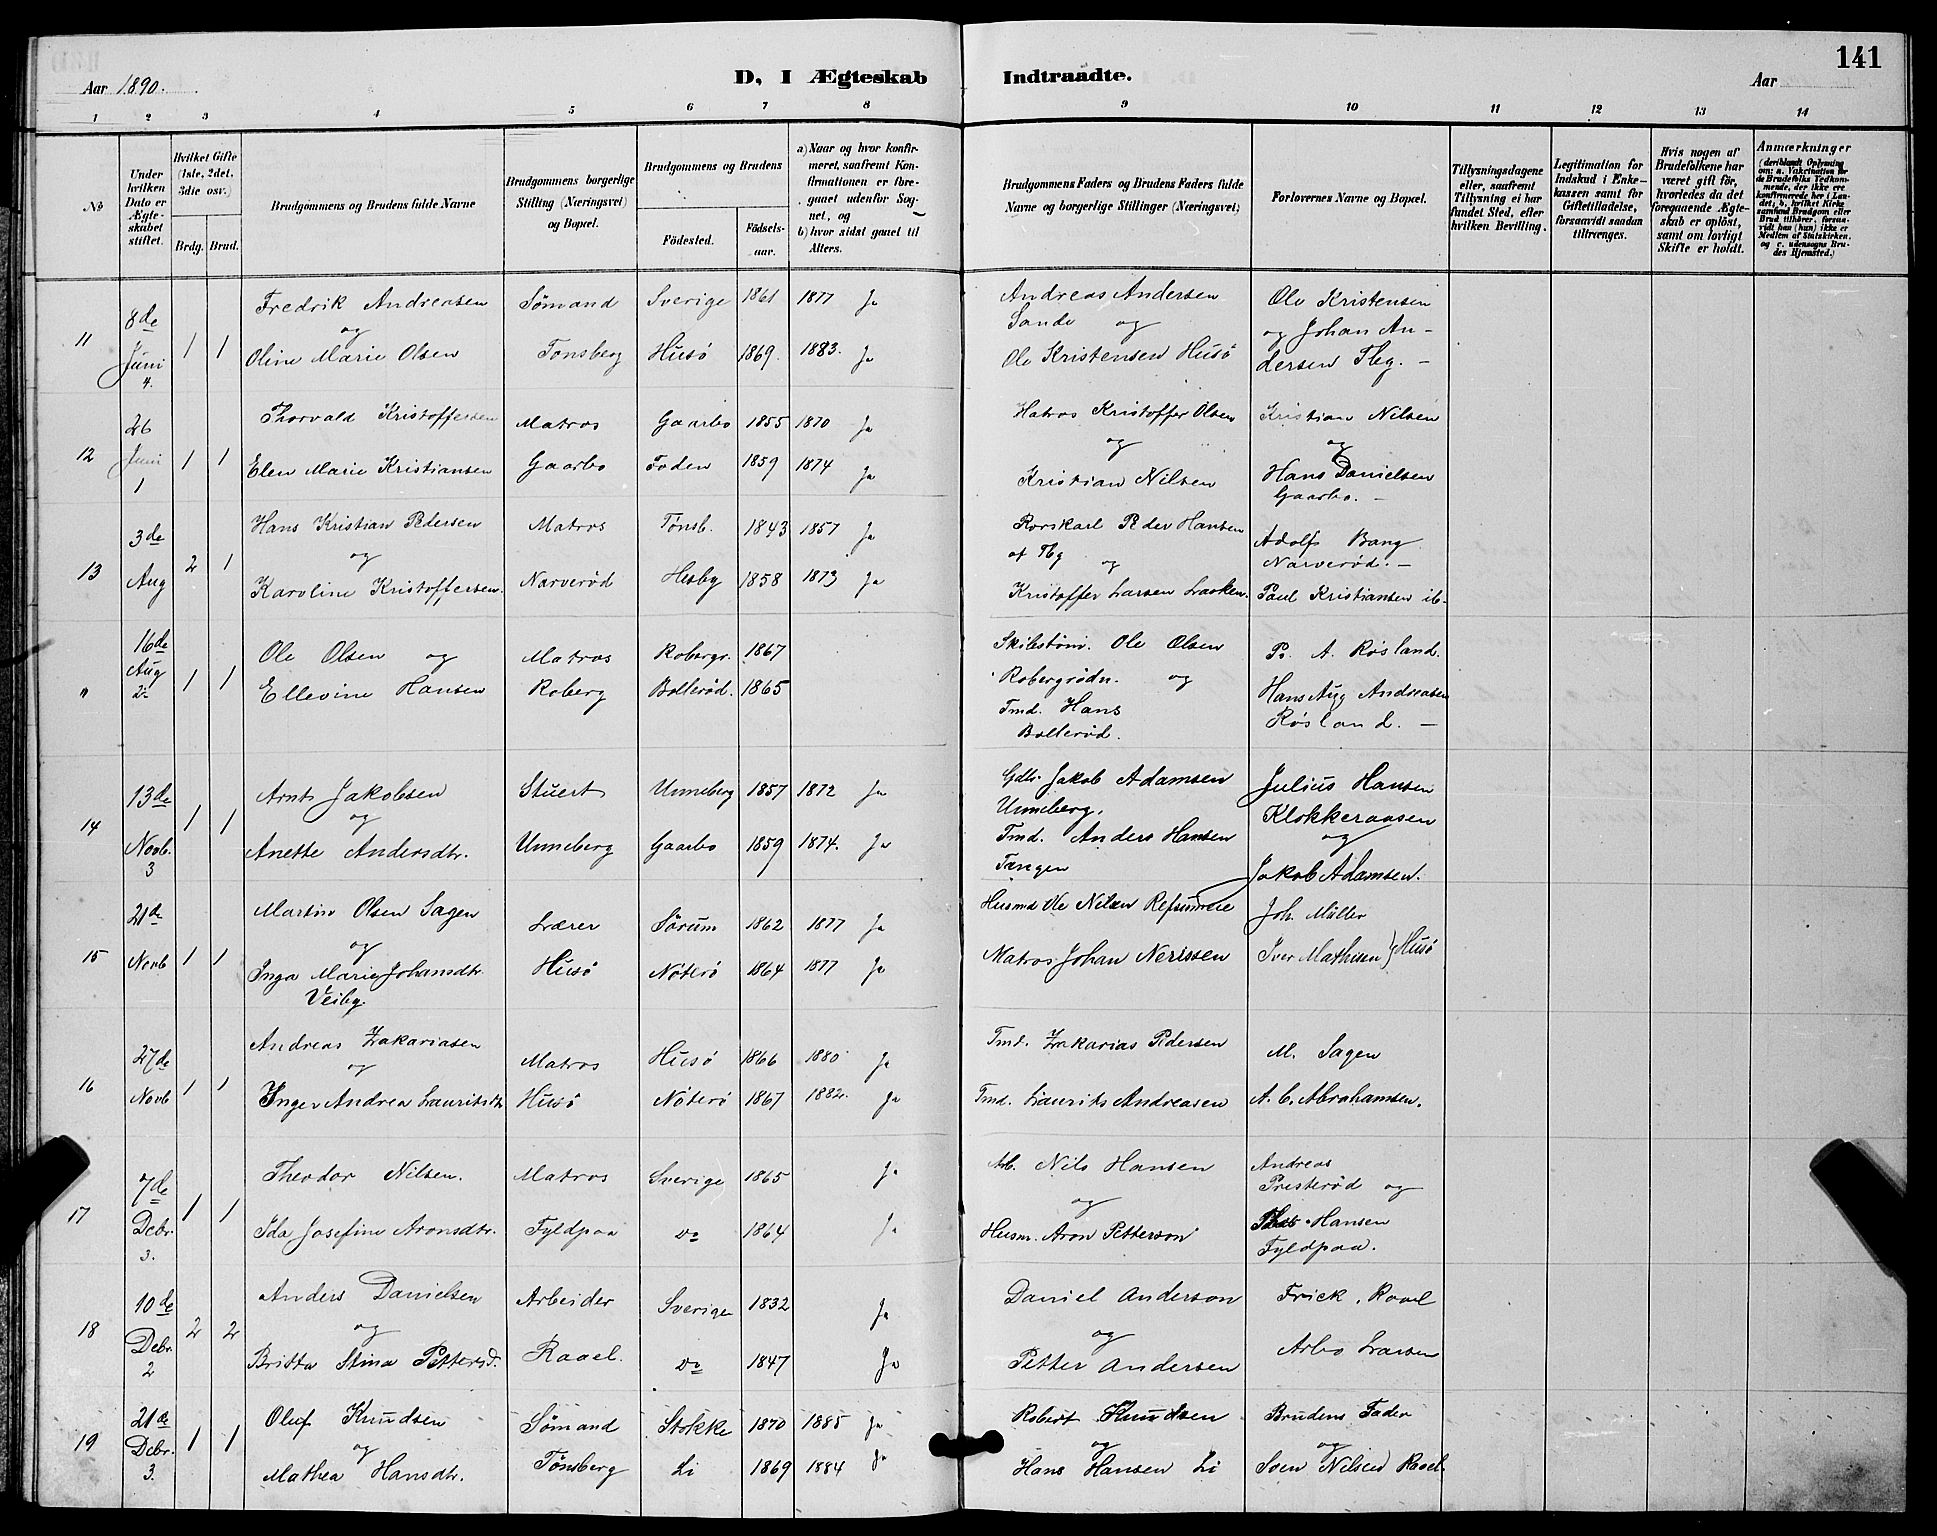 141
Aar 1890.
D, I Ægteskab Indtraadte.
Aar
1 2 3 4 5 6 7 8 9 10 11 12 13 14
No
Under hvilken Dato er Ægteskabet stiftet.
Hvilket Gifte (1ste, 2det, 3die osv.)
Brdg. Brud.
Brudgommens og Brudens fulde Navne
Brudgommens borgerlige Stilling (Næringsvei) og Bopæl.
Brudgommens og Brudens
Fødested.
Fødselsaar.
a) Naar og hvor konfirmeret, saafremt Konfirmationen er foregaaet udenfor Sognet, og
b) hvor sidst gaaet til Alters.
Brudgommens Faders og Brudens Faders fulde Navne og borgerlige Stillinger (Næringsvei)
Forlovernes Navne og Bopæl.
Tillysningsdagene eller, saafremt Tillysning ei har fundet Sted, efter hvilken Bevilling.
Legitimation for Indskud i Enkekassen samt for Giftetilladelse, forsaavidt saadan tiltrænges.
Hvis nogen af Brudefolkene har været gift før, hvorledes da det foregaaende Ægteskab er opløst, samt om lovligt Skifte er holdt.
Anmærkninger (deriblandt Oplysning om: a. Vaksination for de Brudefolks Vedkommende, der ikke ere konfirmerede her i Landet; b, hvilket Kirkesamfund Brudgom eller Brud tilhører, forsaavidt han (hun) ikke er Medlem af Statskirken, og c. udensogns Brudes Hjemsted.)
11 8de Juni 4. 1 1
Fredrik Andreasen Sømand Sverige 1861 1877 Ja
og
Oline Marie Olsen Tønsberg Husö 1869. 1883. Ja
Andreas Andersen
Sande og
Ole Kristensen Husö
Ole Kristensen
og Johan An-
dersen Tbg. –
12 26 Juni 1 1 1
Thorvald Kristoffersen Matros Gaarbo 1855 1870 Ja
Elen Marie Kristiansen Gaarbo Foden 1859 1874 Ja
Matros Kristoffer Olsen
og
Kristian Nilsen
Kristian Nilsen
og
Hans Danielsen
Gaarbo. –
13 3de Aug 2 1
Hans Kristian Pedersen Matros Tønsb. 1843 1857 Ja
og
Karoline Kristoffersen. Narverød Hesby 1858 1873 Ja
Rorskarl Peder Hansen
af Tbg og
Kristoffer Larsen
Adolf Bang
Narverød. –
Paul Kristiansen ib.
" 16de Aug 2 1 1
Ole Olsen og Matros Robergr. 1867
Ellevine Hansen Roberg Bolterød. 1865
Skibstöm. Ole Olsen
Robergrödn. og
Tmd. Hans
Bolterød.
P. A. Røsland.
Hans Aug Andreasen
Røsland. –
14 13de Novb. 3 1 1
Arnt Jakobsen Stuert Unneberg 1857 1872 Ja
og
Anette Andersdtr. Unneberg Gaarbo 1859 1874. Ja
Gdbr. Jakob Adamsen
Unneberg,
Tmd. Anders Hansen
Tangen
Julius Hansen
Klokkeraasen
og
Jakob Adamsen.
15 21de Novb 1 1
Martin Olsen Sagen Lærer Sörum 1862 1877 Ja
og
Inga Marie Johansdtr. Husö Nöterö 1864 1877 Ja
Veiby.
Husmd Ole Nilsen
Matros Johan Nerissen
Joh. Müller
Iver Mathisen } Husö
16 27de Novb 1 1
Andreas Zakariasen Matros Husö 1866 1880 Ja
og
Inger Andrea Lauritsdtr Husö Nöterö 1867 1882. Ja
Tmd. Zakarias Pedersen
Tmd. Laurits Andreasen
M. Sagen
A. C. Abrahamsen.
17 7de Debr. 3. 1 1
Theodor Nilsen. Matros Sverige 1865 Ja
Ida Josefine Aronsdtr. Fyldpaa do 1864 Ja
Arb. Nils Hansen
og
Husm. Aron Petterson
Andreas
Presterød og
Hansen
Fyldpaa.
18 10de Debr. 2 2 2
Anders Danielsen Arbeider Sverige 1832 Ja
og
Britta Stina Pettersd. Raael. do 1847 Ja
Daniel Anderson
og
Petter Andersen
Frick, Raael
Arbo Larsen
19 21de Debr. 3. 1 1
Oluf Knudsen Sømand Stokke 1870 1885 Ja
og
Mathea Hansdtr. Tønsberg Li 1869 1884 Ja
Robert Knudsen
og
Hans Hansen Li
Brudens Fader
og
Sven Nilsen Raael